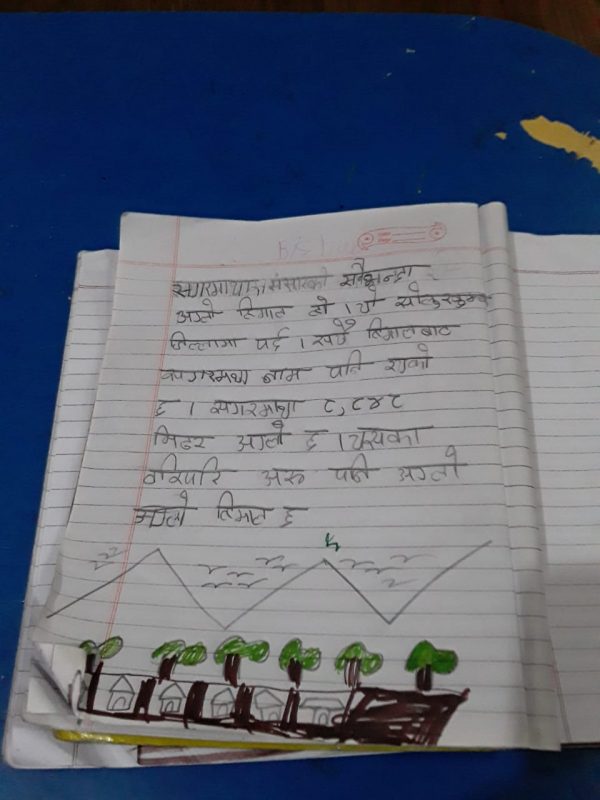 सगरमाथा संसारको सबैभन्दा
अग्लो हिमाल हो । यो सोलुखुम्बु
जिल्लामा पर्छ । यसै हिमालबाट
सगरमाथा नाम पनि रहेको
छ । सगरमाथा ८,८४८
मिटर अग्लो छ । यसका
वरिपरि अरु पनि अग्लो
अग्लो हिमाल छ